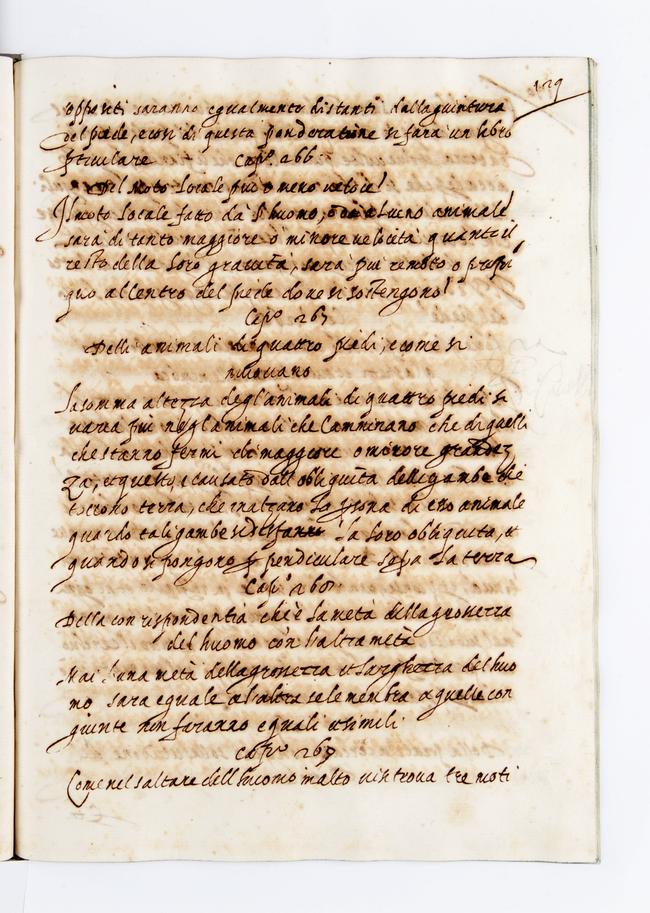 129
oppositi saranno egualmente distanti dalla giuntura
del piede, e cosi di questa ponderatione si fara un libro
pticulare Cap.º 266.
Del Moto Locale piu o meno veloce
Il moto locale fatto da l'huomo, o da alcuno animale
sara di tanto maggiore o minore velocità quanto il
resto della loro gravità, sara piu remoto o propi
quo al centro del piede dove si sostengono
Cap.º 267
Delli animali di quattro piedi, e come si
muovano
La somma altezza degl'animali di quattro piedi si
varia piu negl'animali che camminano che di quelli
che stanno fermi di maggiore o minore grandez
za, e questo e causato dall'obliquita delle gambe che
toccono terra, che inalzano la de esso animale
quando tali gambe disfanno la loro obliquita, et
quando si pongono ppendiculare sopa la terra
Cap.º 268
Della conrispondentia che è la metà della grossezza
del huomo con l'altra metà
Mai l'una metà della grossezza et larghezza del huo
mo sara eguale a l'altra se le membra a quelle con
giunte non faranno eguali e simili
Cap.º 269
Come nel saltare dell'huomo in alto vi si trova tre moti